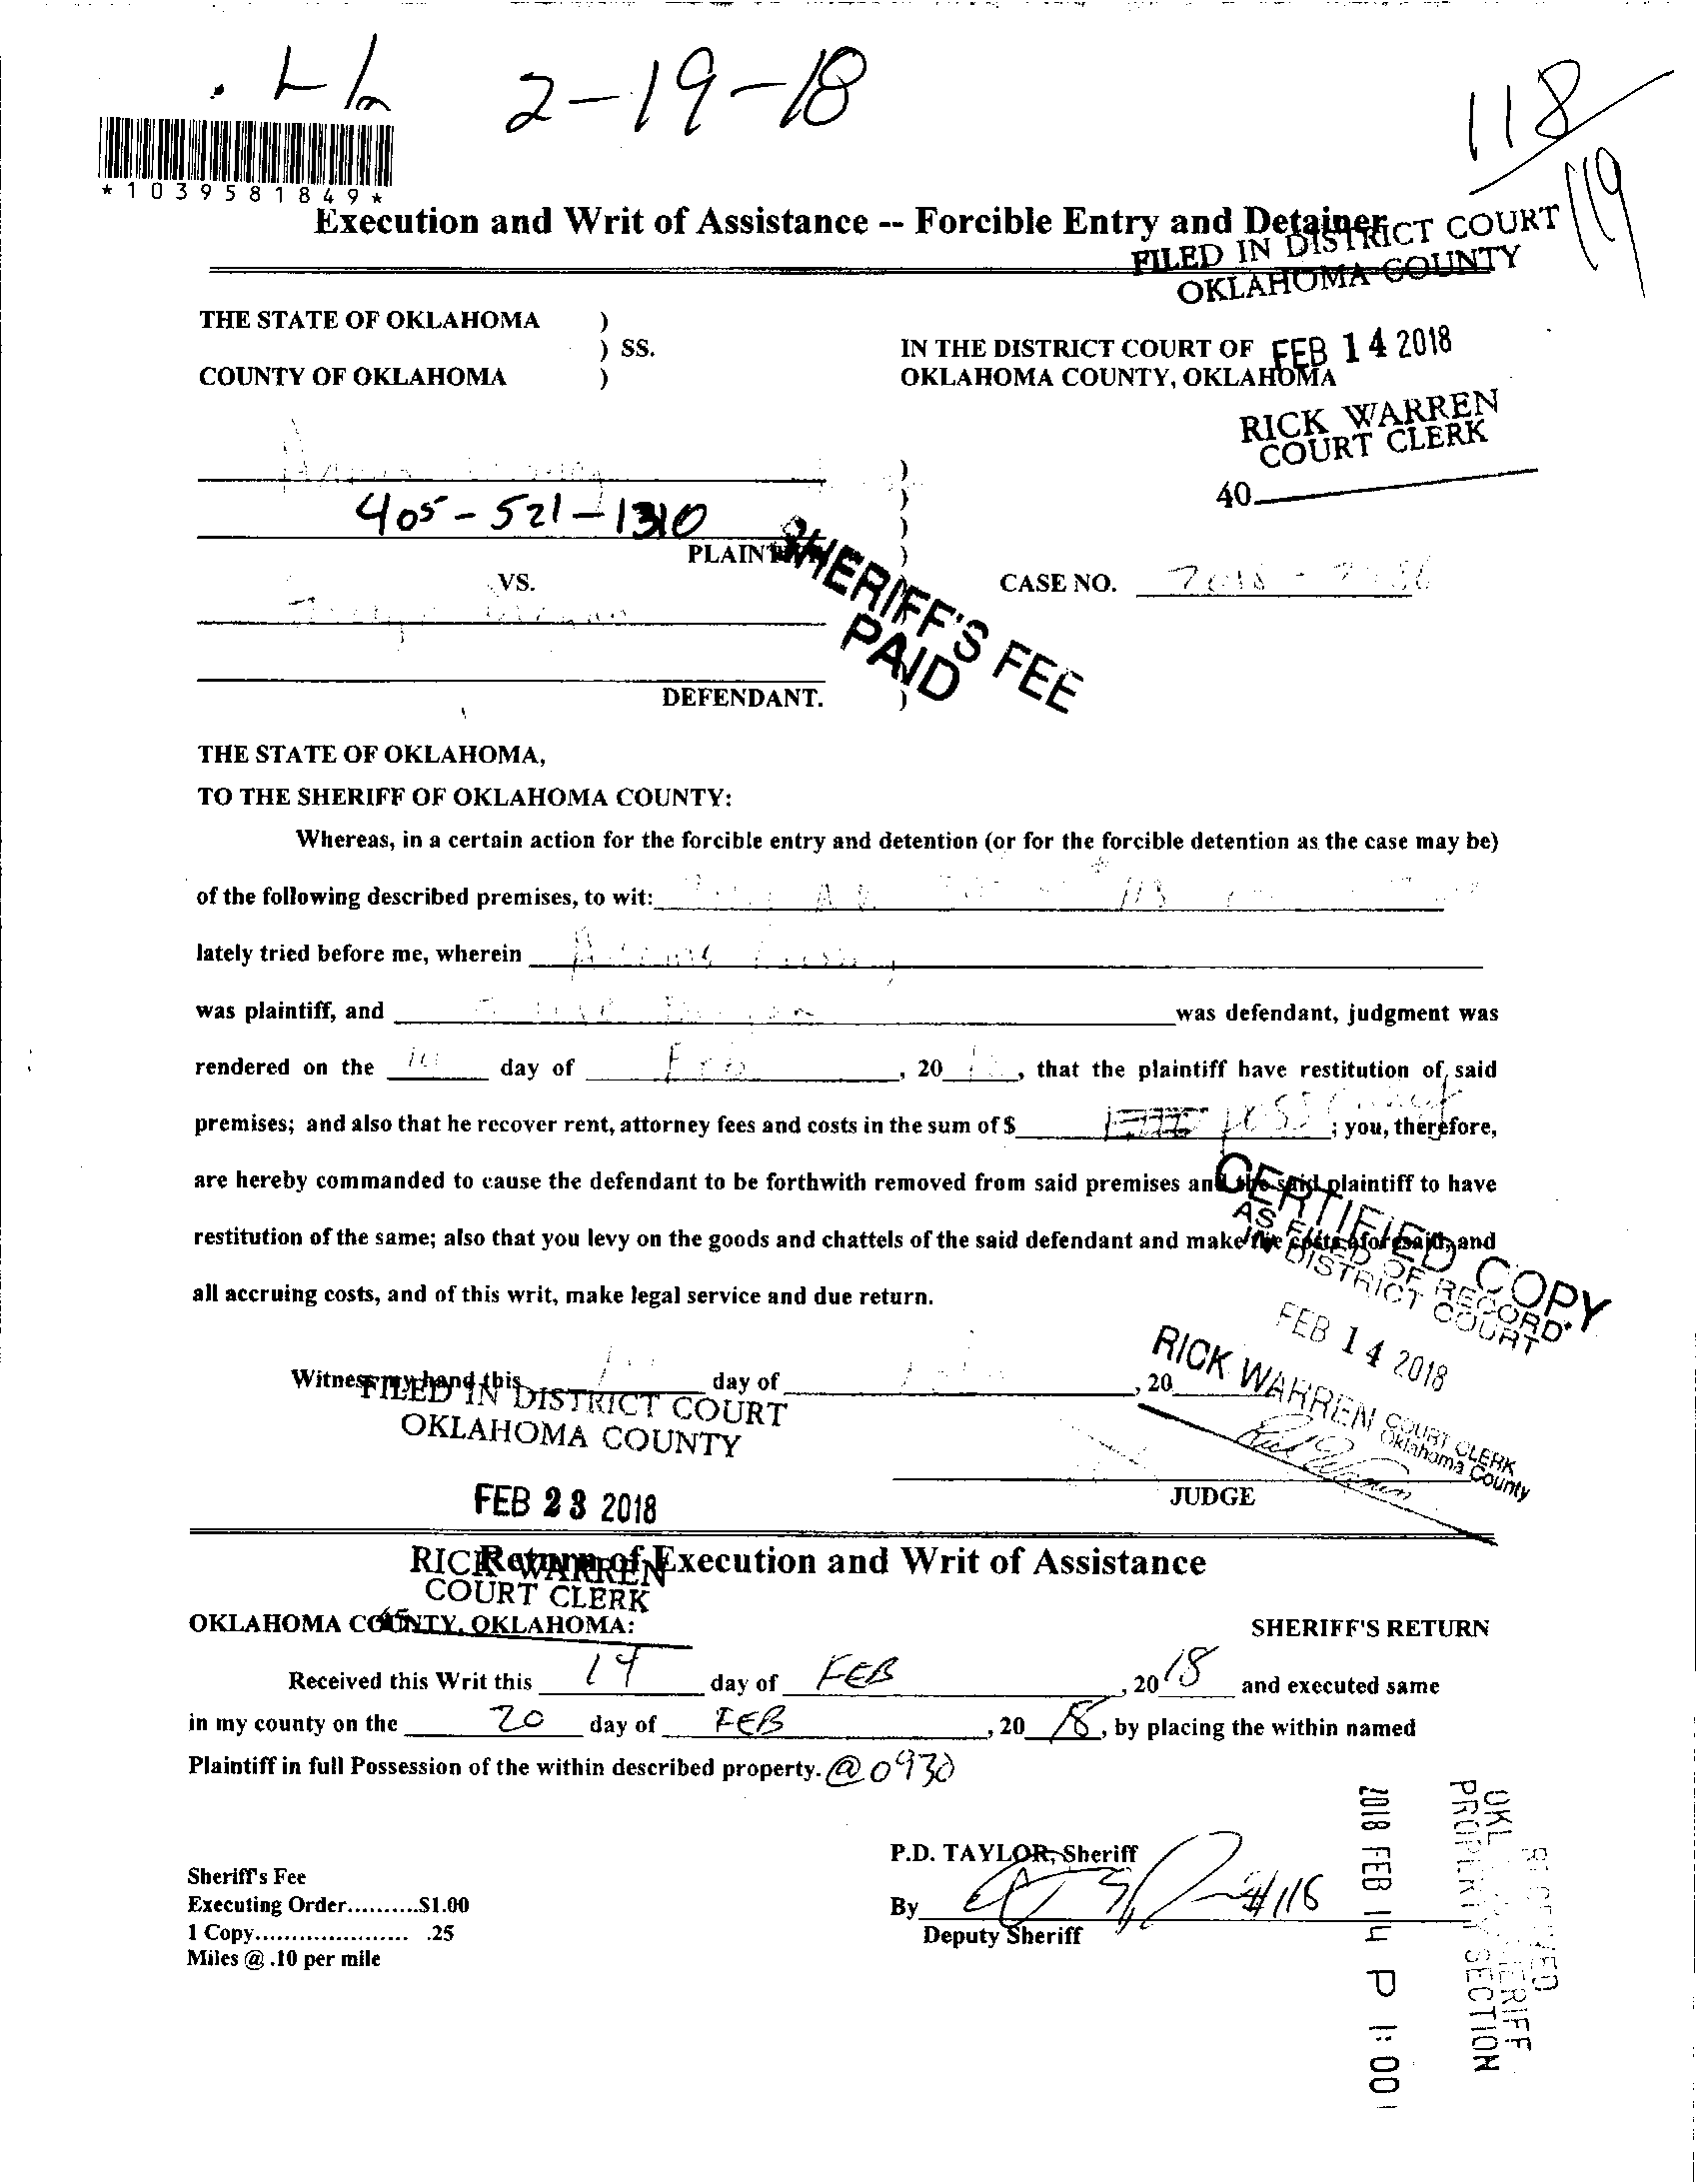 2-19-18
118
119
*1039581849*
Execution and Writ of Assistance -- Forcible Entry and Detainer
FILED IN DISTRICT COURT
OKLAHOMA COUNTY
THE STATE OF OKLAHOMA )
) SS.
COUNTY OF OKLAHOMA )
IN THE DISTRICT COURT OF
OKLAHOMA COUNTY, OKLAHOMA
FEB 14 2018
RICK WARREN
COURT CLERK
40
405-521-1310
PLAINTIFF
SHERIFF'S FEE
PAID
VS.
CASE NO.
DEFENDANT.
THE STATE OF OKLAHOMA,
TO THE SHERIFF OF OKLAHOMA COUNTY:
Whereas, in a certain action for the forcible entry and detention (or for the forcible detention as the case may be)
of the following described premises, to wit:
lately tried before me, wherein
was plaintiff, and was defendant, judgment was
rendered on the day of Feb, 20, that the plaintiff have restitution of said
premises; and also that he recover rent, attorney fees and costs in the sum of $ ; you, therefore,
are hereby commanded to cause the defendant to be forthwith removed from said premises and the said plaintiff to have
restitution of the same; also that you levy on the goods and chattels of the said defendant and make the costs aforesaid, and
all accruing costs, and of this writ, make legal service and due return.
CERTIFIED COPY
AS FILED OF RECORD
IN DISTRICT COURT
FEB 14 2018
RICK WARREN COURT CLERK
Oklahoma County
Rick Warren
Witness my hand this day of , 20
JUDGE
FILED IN DISTRICT COURT
OKLAHOMA COUNTY
FEB 23 2018
RICK WARREN
COURT CLERK
Return of Execution and Writ of Assistance
OKLAHOMA COUNTY, OKLAHOMA: SHERIFF'S RETURN
Received this Writ this 14 day of FEB, 2018 and executed same
in my county on the 20 day of FEB, 20 18, by placing the within named
Plaintiff in full Possession of the within described property. @ 0930
P.D. TAYLOR, Sheriff
By
Deputy Sheriff
Sheriff's Fee
Executing Order..........$1.00
1 Copy..................... .25
Miles @ .10 per mile
2018 FEB 14 P 1:00
RECEIVED
OKL SHERIFF
PROPERTY SECTION